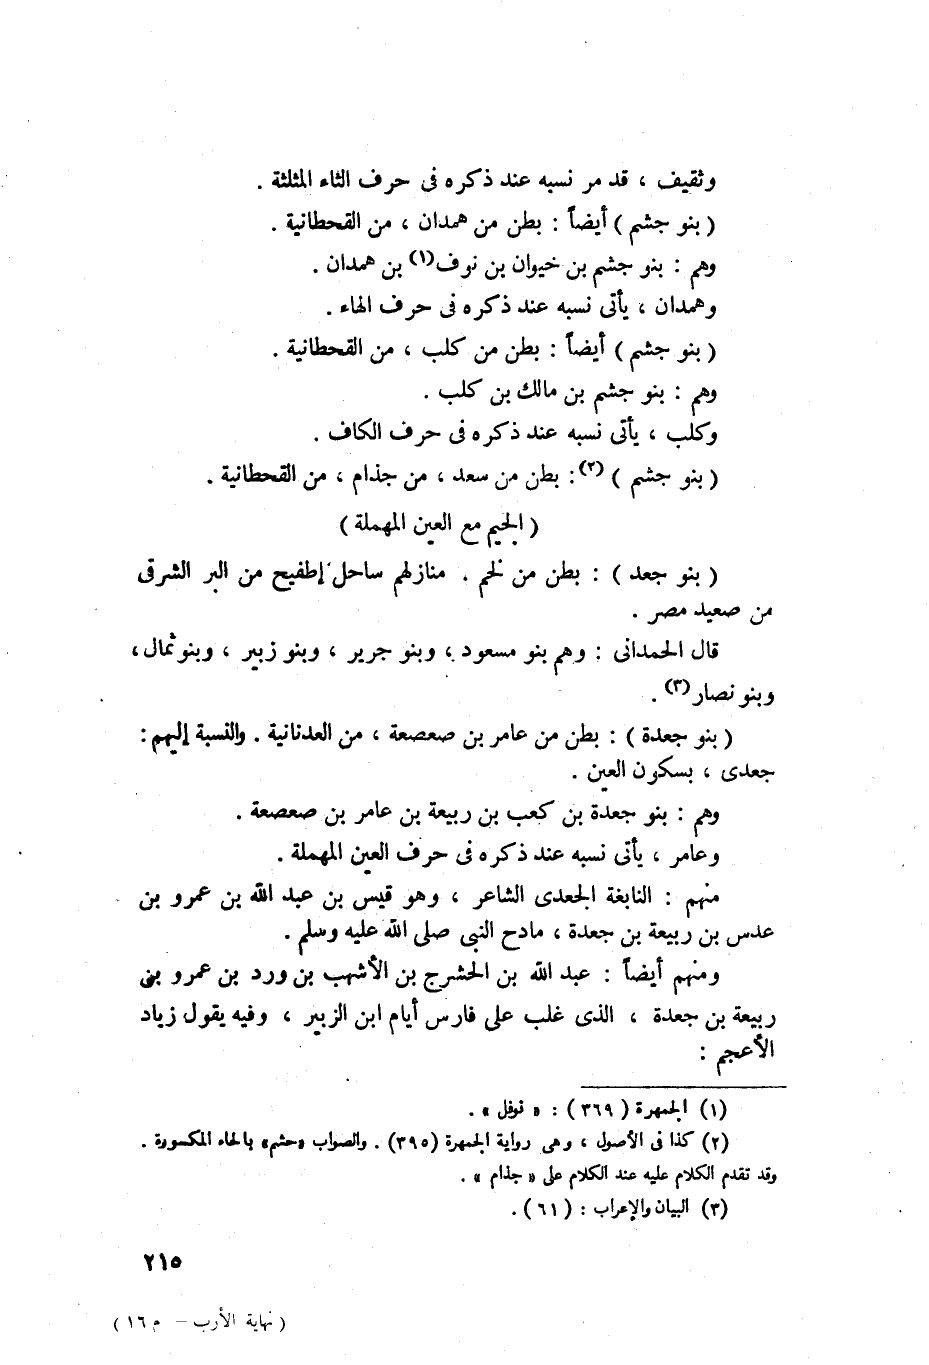 وثقيف ، قد مر نسبه عند ذكره فى حرف الثاء المثلثة .
( بنو جشم ) أيضاً : بطن من همدان ، من القحطانية .
وهم : بنو جشم بن خيوان بن نوف(١) بن همدان .
وهمدان ، يأتى نسبه عند ذكره فى حرف الهاء .
( بنو جشم ) أيضاً : بطن من كلب ، من القحطانية .
وهم : بنو جشم بن مالك بن كلب .
وكلب ، يأتى نسبه عند ذكره فى حرف الكاف .
( بنو جشم ) (٢): بطن من سعد ، من جذام ، من القحطانية .
( الجيم مع العين المهملة )
( بنو جعد ) : بطن من لخم . منازلهم ساحل إطفيح من البر الشرقى
من صعيد مصر .
قال الحمدانى : وهم بنو مسعود ، وبنو جرير ، وبنو زبير ، وبنو ثمال ،
وبنو نصار(٣) .
( بنو جعدة ) : بطن من عامر بن صعصعة ، من العدنانية . والنسبة إليهم :
جعدى ، بسكون العين .
وهم : بنو جعدة بن كعب بن ربيعة بن عامر بن صعصعة .
وعامر ، يأتى نسبه عند ذكره فى حرف العين المهملة .
منهم : النابغة الجعدى الشاعر ، وهو قيس بن عبد الله بن عمرو بن
عدس بن ربيعة بن جعدة ، مادح النبى صلى الله عليه وسلم .
ومنهم أيضاً : عبد الله بن الحشرج بن الأشهب بن ورد بن عمرو بنى
ربيعة بن جعدة ، الذى غلب على فارس أيام ابن الزبير ، وفيه يقول زياد
الأعجم :
(١) الجمهرة ( ٣٦٩ ) : « نوفل » .
(٢) كذا فى الأصول ، وهى رواية الجمهرة (٣٩٥) . والصواب «حشم» بالحاء المكسورة .
وقد تقدم الكلام عليه عند الكلام على « جذام » .
(٣) البيان والإعراب : ( ٦١ ) .
٢١٥
( نهاية الأرب – م ١٦ )